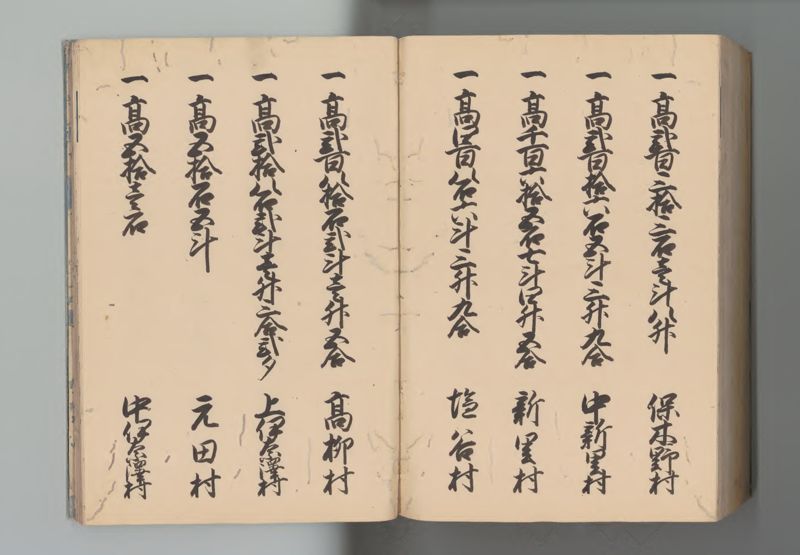 一 高弐百三拾三石壱斗八升 保木野村
一 高弐百拾六石五斗三升九合 中新里村
一 高千百六拾五石七斗四升五合 新里村
一 高四百八石六斗三升九合 塩谷村
一 高弐百八拾石弐斗壱升五合 高柳村
一 高弐拾八石弐斗壱升三合弐夕 上伊奈澤村
一 高五拾石五斗 元田村
一 高五拾壱石 中伊奈澤村